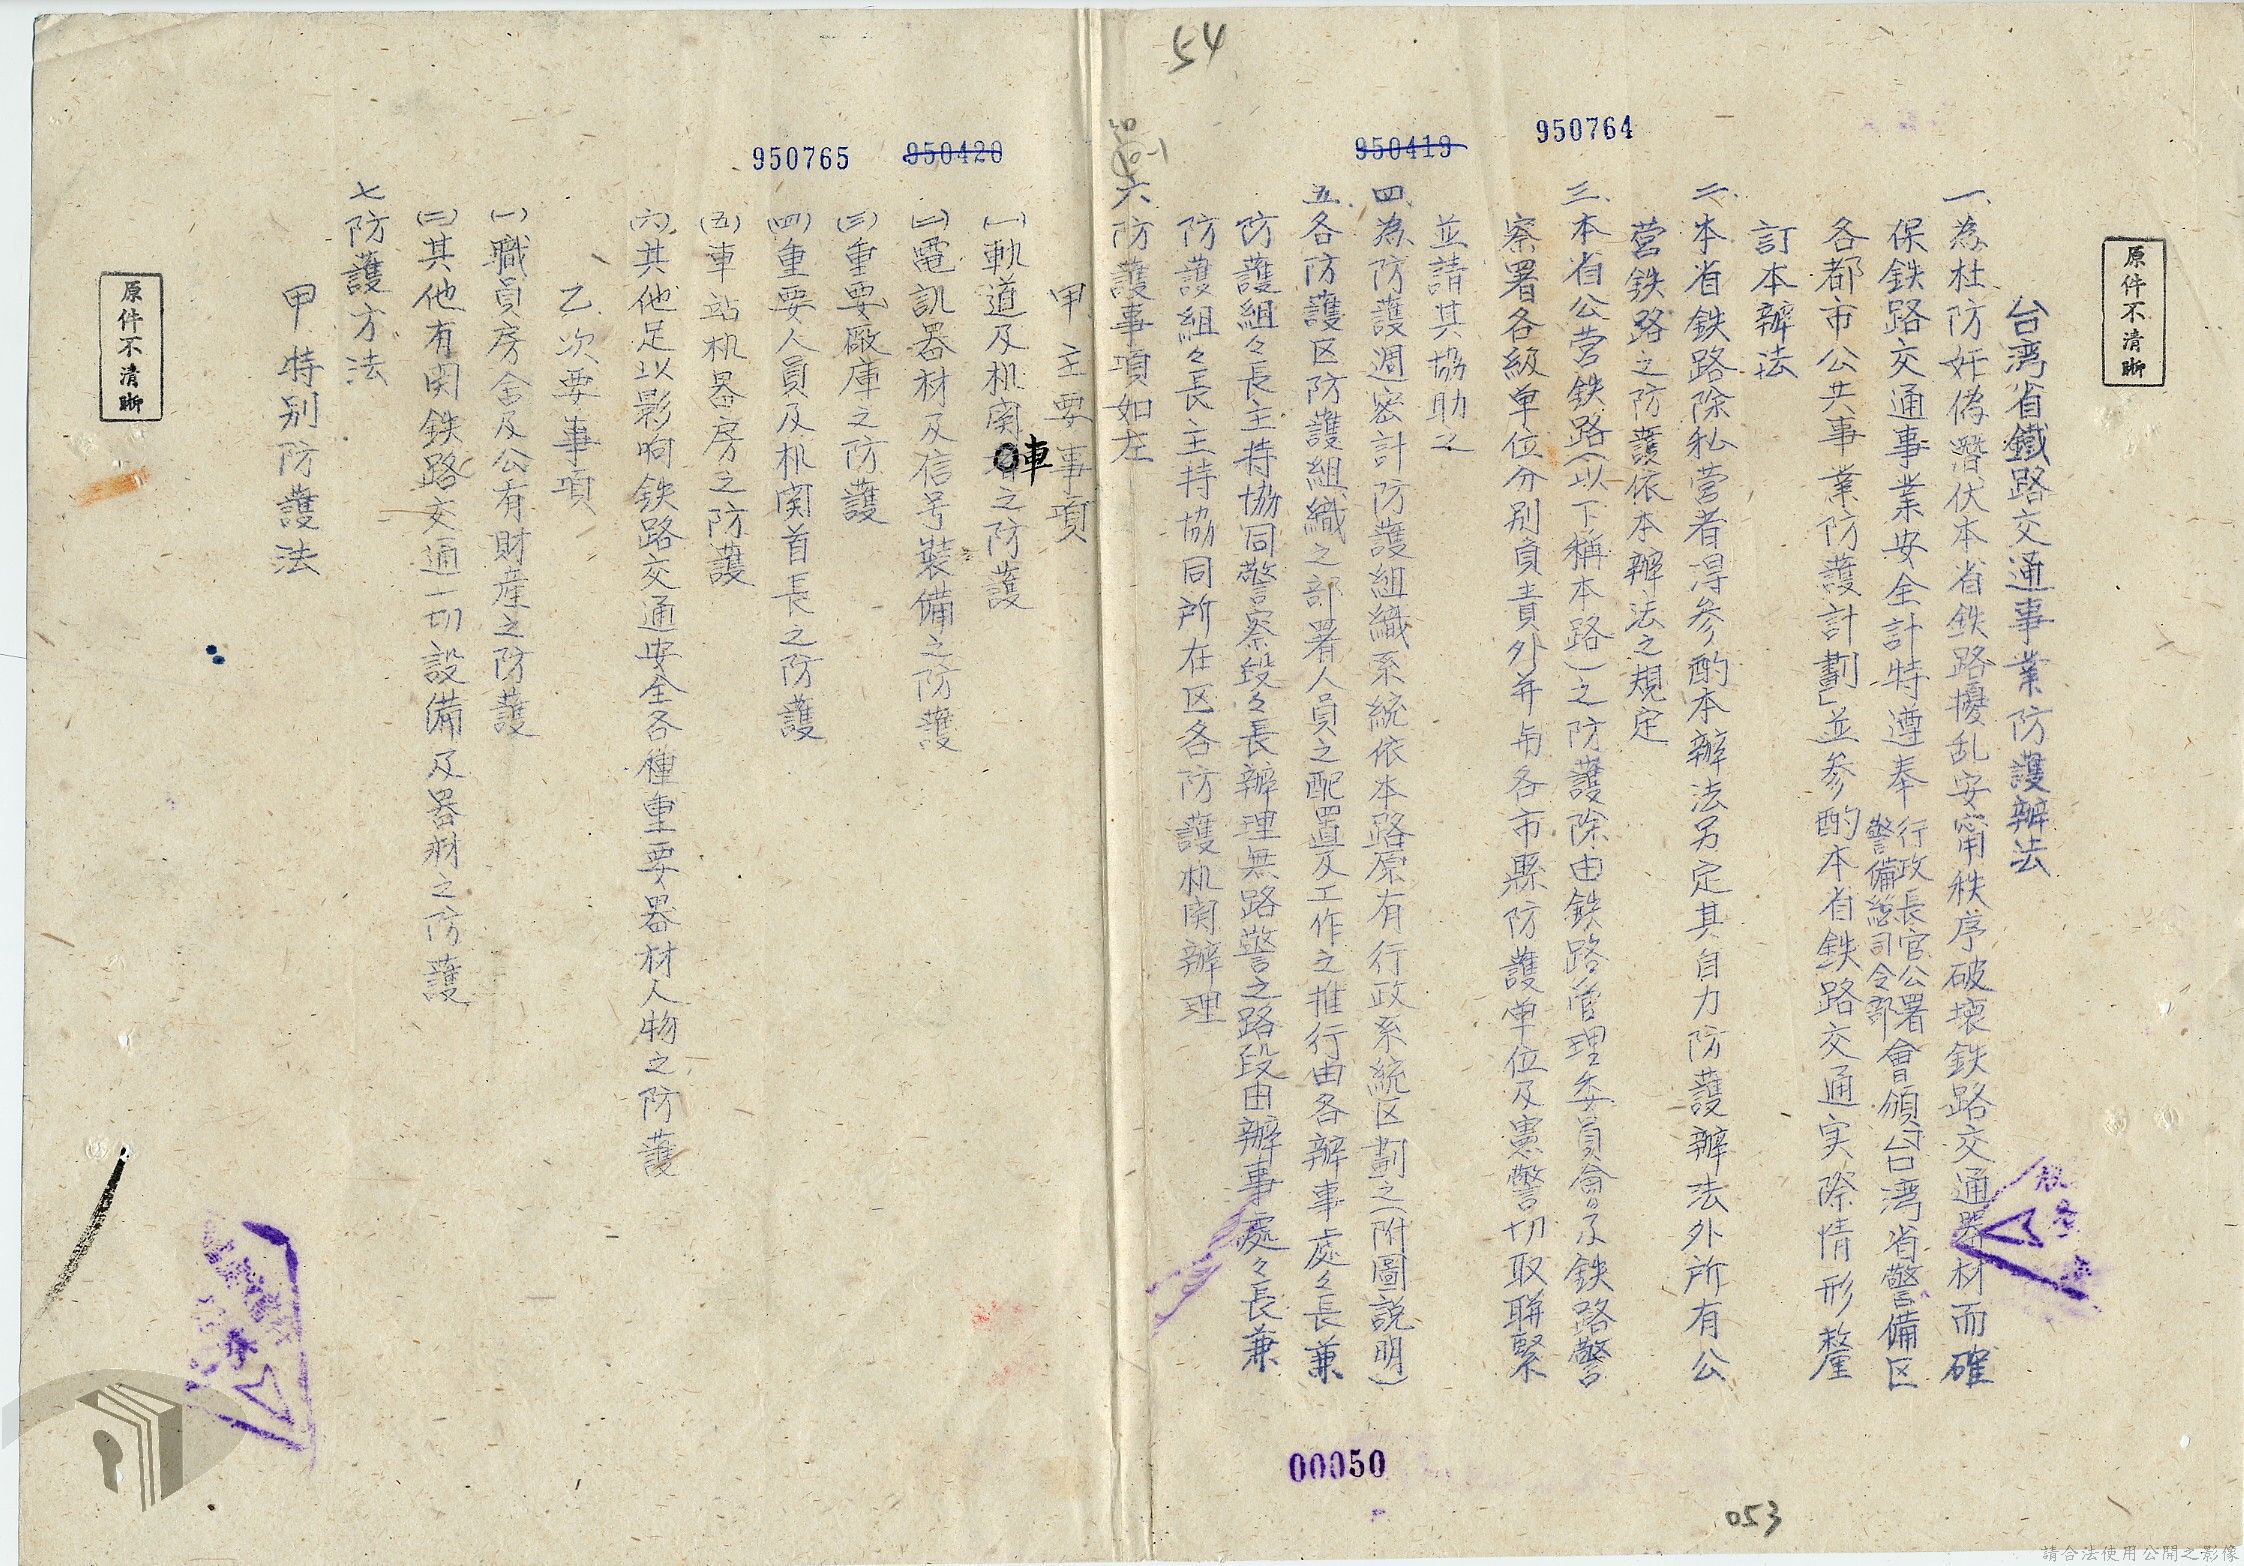 54
950764
950419
950420
950765
原件不清晰
台湾省鐵路交通事業防護辦法
一、為杜防奸偽潛伏本省鉄路擾乱安甯秩序破壊鉄路交通器材而確
保鉄路交通事業安全計特遵奉行政長官公署警備總司令部會頒「台湾省警備区
各都市公共事業防護計劃」並参酌本省鉄路交通实際情形釐
訂本辦法
二、本省鉄路除私营者得参酌本辦法另定其自力防護辦法外所有公
营鉄路之防護依本辦法之規定
三、本省公营鉄路(以下稱本路)之防護除由鉄路管理委員會及鉄路警
察署各級单位分别負責外并与各市縣防護单位及憲警切取聯緊
並請其協助之
四、為防護週密計防護組織系統依本路原有行政系統区劃之(附圖説明)
五、各防護区防護組織之部署人員之配置及工作之推行由各辦事處々長兼
防護組々長主持協同警察段々長辦理無路警之路段由辦事處々長兼
防護組々長主持協同所在区各防護机関辦理
六防護事項如左
甲、主要事項
(一)軌道及机関車之防護
(二)電訊器材及信号裝備之防護
(三)重要廠庫之防護
(四)重要人員及机関首長之防護
(五)車站机器房之防護
(六)其他足以影响鉄路交通安全各種重要器材人物之防護
乙、次要事項
(一)職員房舍及公有財産之防護
(二)其他有関鉄路交通一切設備及器材之防護
七防護方法
甲、特别防護法
原件不清晰
00050
053
請合法使用公開之影像